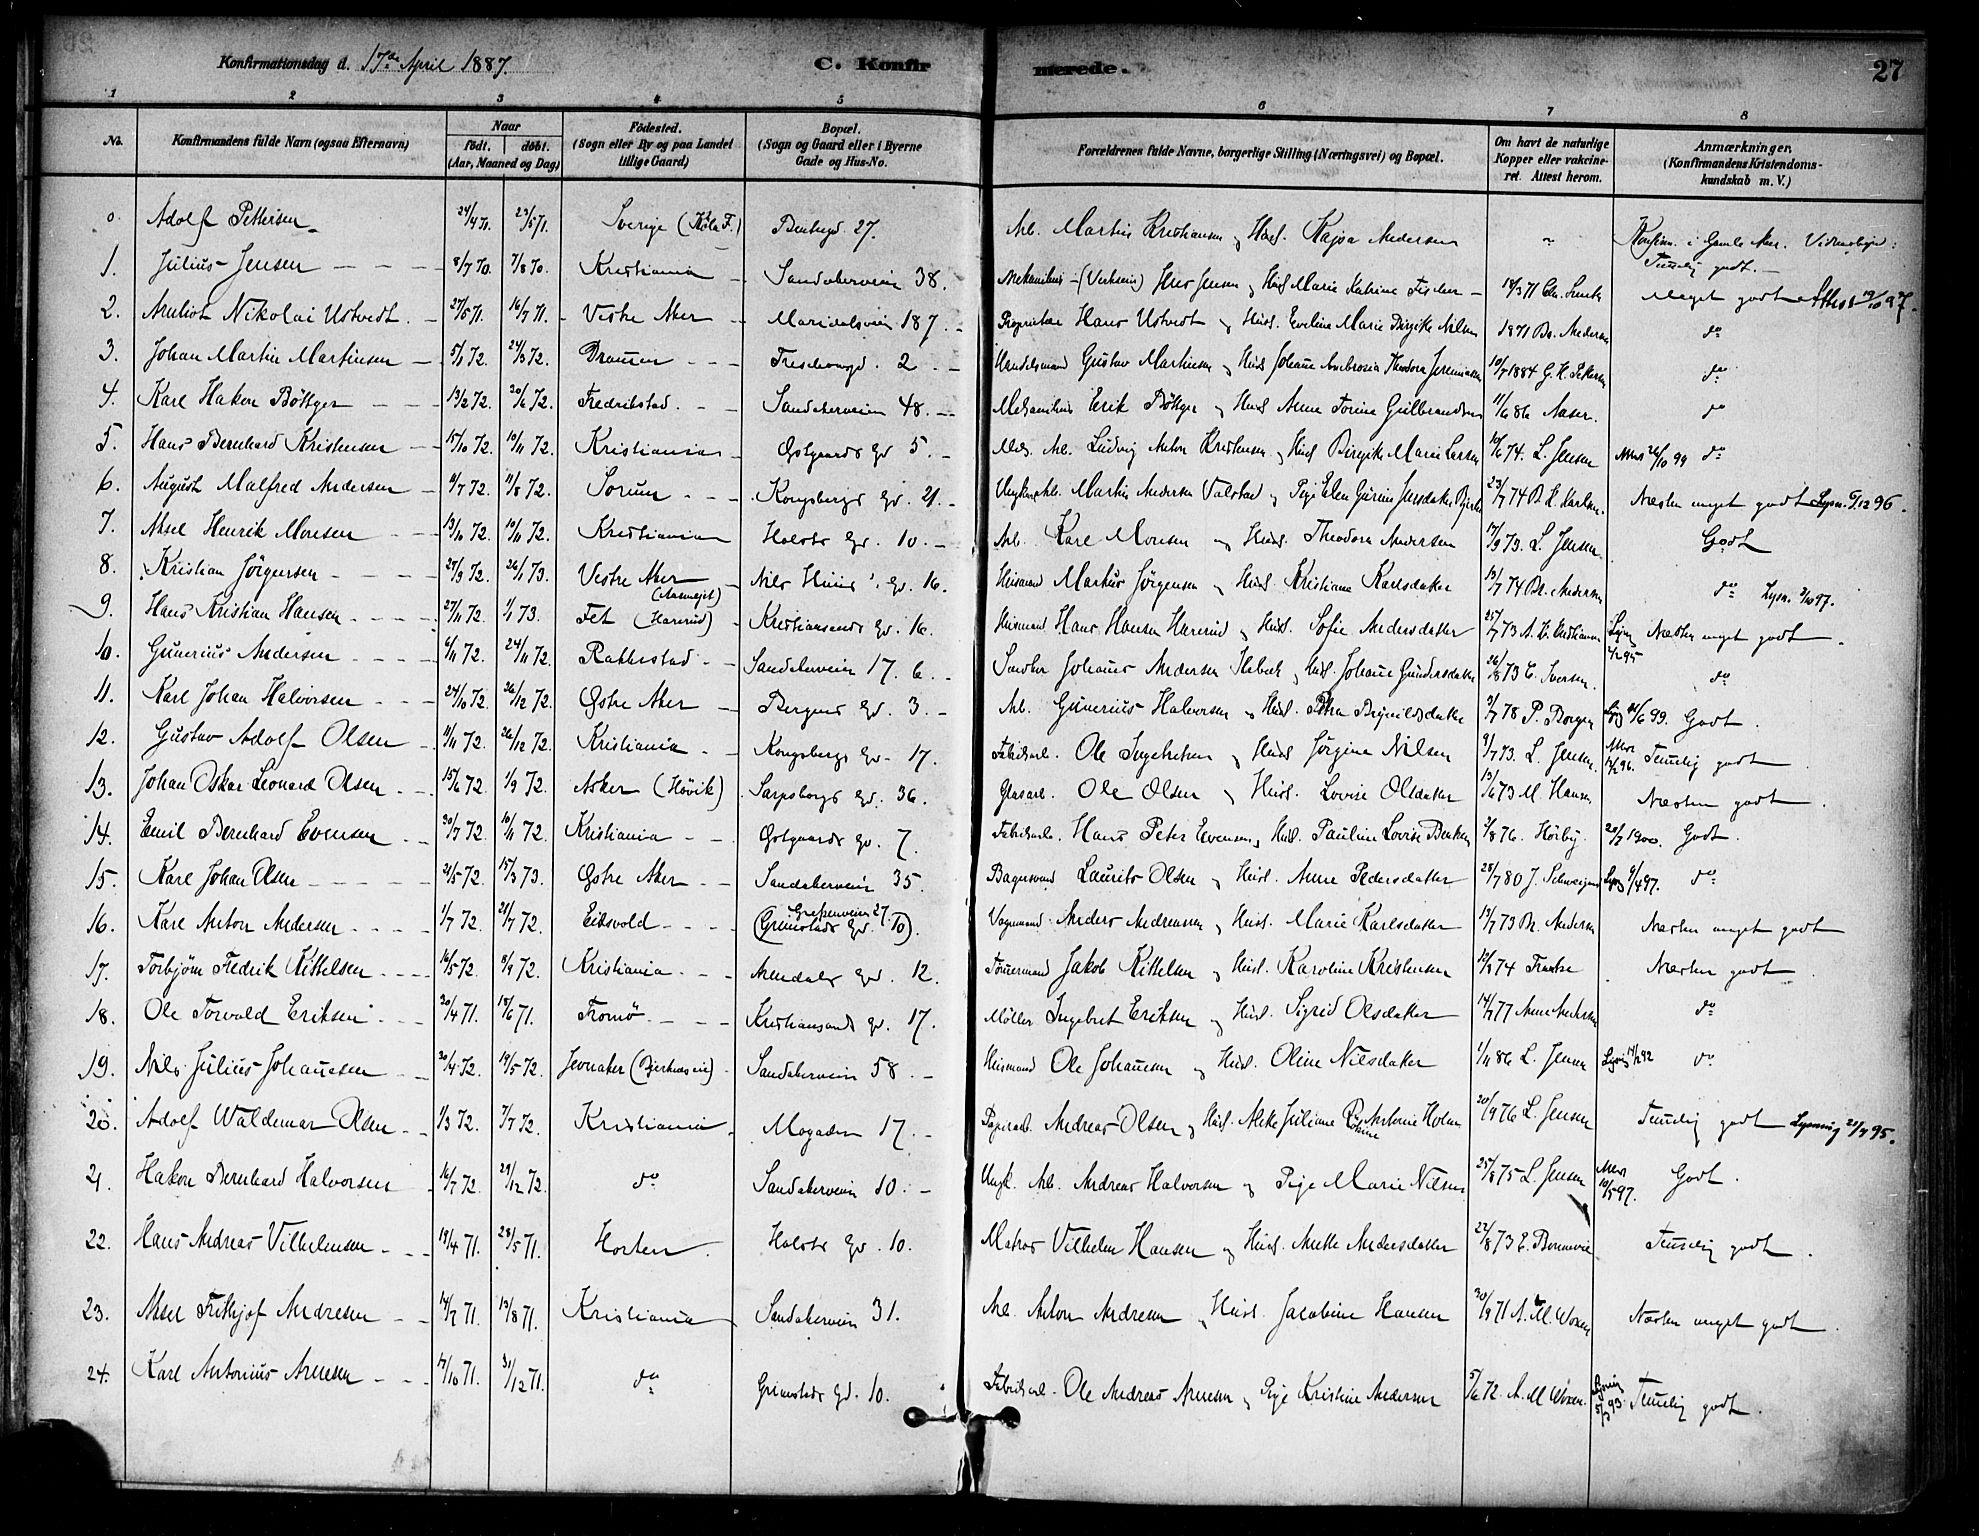 Konfirmationsdag d. 17de April 1887. C. Konfirmerede. 27
1 2 3 4 5 6 7 8
No. Konfirmandens fulde Navn (ogsaa Efternavn) Naar født. døbt. (Aar, Maaned og Dag) Fødested. (Sogn eller By og paa Landet tillige Gaard) Bopæl. (Sogn og Gaard eller i Byerne Gade og Hus-No. Forældrenes fulde Navne, borgerlige Stilling (Næringsvei) og Bopæl. Om havt de naturlige Kopper eller vakcineret. Attest herom. Anmærkninger. (Konfirmandens Kristendomskundskab m. V.)
0. Adolf Pettersen 24/4 71. 23/5 71. Sverige 27. Arb. Martin Kristiansen og Hust. Kajsa Andersen Temlig godt.
1. Julius Jensen 8/7 70. 7/8 70. Kristiania Sandakerveien 38. Mekanikus Jensen og Hust. Marie Katrine Fischer Meget godt Attest 19/10 97.
2. Nikolai Ustvedt. 27/5 71. 16/7 71. Vestre Aker Maridalsveien 187. Proprietær Hans Ustvedt og Hust. Eveline Marie Birgitte Nilsen 1871 Br. Andersen do
3. Johan Martin Martinsen 5/1 72. 24/3 72. Drammen 2 Handelsmand Gustav Martinsen og Hust. Johanne Ambrosia Theodora Jeremiassen 10/7 1884 G. H. Petersen do
4. Karl Hakon Bøttger 13/2 72. 20/6 72. Fredrikstad. Sandakerveien 48. Mekanikus Erik Bøttger og Hust. Anne Torine Gulbrandsen 11/6 86 Aaser. do
5. Hans Bernhard Kristensen 15/10 72. 10/11 72. Kristiania Østgaards Gd 5. Arb. Ludvig Anton Kristensen og Hust. Birgitte Marie Larsen 10/6 74. L. Jensen 26/10 99 do
6. August Malfred Andersen 4/7 72. 11/8 72. Sorum Kongsbergs Gd. 21. Martin Andersen Valstad og Pige Elen Gurine Jensdatter 23/7 74 B. K. Karlsen. Næsten meget godt Lysn. 6/12 96.
7. Aksel Henrik Monsen 13/10 72. 10/11 72. Kristiania Holsts Gd. 10. Arb. Karl Monsen og Hust. Theodora Andersen 17/9 73. L. Jensen Godt
8. Kristian Jörgensen 27/9 72. 26/1 73. Vestre Aker Nils Huus's Gd. 16. Husmand Markus Jörgensen og Hust. Kristiane Karlsdatter 13/7 74 Br. Andersen do Lysn. 3/10 97.
9. Hans Kristian Hansen 27/11 72. 1/1 73. Fet (Harerud) Kristiansands Gd. 16. Husmand Hans Hansen Harerud og Hust. Sofie Andersdatter 25/7 73 A. K. Kristiansen Næsten meget godt.
10. Gunerius Andersen 6/11 72. 24/11 72. Rakkestad Sandakerveien 17. 6. Snedker Johannes Andersen og Hust. Johanne Gundersdatter 26/8 73 E. Iversen. do
11. Karl Johan Halvorsen 24/10 72. 26/12 72. Østre Aker Bergens Gd. 3. Arb. Gunerius Halvorsen og Hust. Petra Brynildsdatter 3/7 78 P. Borgen 14/6 99. Godt.
12. Gustav Adolf Olsen 11/11 72. 26/12 72. Kristiania Kongsbergs Gd. 17. Fabrikarb. Ole Ingebretsen og Hust. Jörgine Nilsen 9/7 73. L. Jensen. Temlig godt
13. Johan Oskar Leonard Olsen 15/6 72. 1/9 72. Asker (Hövik) Sarpsborgs Gd. 36. Glasarb. Ole Olsen og Hust. Lovise Olsdatter 13/6 73 M. Hansen Næsten godt.
14. Emil Bernhard Evensen 30/7 72. 10/11 72. Kristiania Østgaards Gd. 7. Fabrikarb. Hans Peter Evensen, Hust. Pauline Lovise 3/8 76. Hörby. 20/7 1900. Godt.
15. Karl Johan Olsen 21/5 72. 15/3 73. Østre Aker Sandakerveien 35. Bagersvend Laurits Olsen og Hust. Anne Pedersdatter 28/7 80 J. Schweigaard 9/4 97. do
16. Karl Anton Andersen 1/7 72. 21/7 72. Eidsvold Grefsenveien 27. (Grimstads Gd. 10). Vognmand Anders Andreassen og Hust. Marie Karlsdatter 13/7 73 Br. Andersen Næsten meget godt
17. Torbjørn Fredrik Kittelsen 16/5 72. 8/9 72. Kristiania Arendals Gd. 12. Tömmermand Jakob Kittelsen og Hust. Karoline Kristensen 74 Næsten godt.
18. Ole Torvald Eriksen 20/4 71. 18/6 71. Tromö Kristiansands Gd. 17. Møller Ingebret Eriksen og Hust. Sigrid Olsdatter 14/7 77 Anne Andersen do
19. Nils Julius Johannesen 30/4 72. 19/5 72. Jevnaker Sandakerveien 58. Husmand Ole Johannesen og Hust. Oline Nilsdatter 1/11 86 L. Jensen 14/1 92 do
20. Adolf Waldemar Olsen 1/3 72. 7/7 72. Kristiania Mogaden 17. Papirarb. Andreas Olsen og Hust. Juliane Antonie Holm 20/9 76 L. Jensen Temlig godt Lysning 21/4 95.
21. Hakon Bernhard Halvorsen 16/7 72. 29/12 72. do Sandakerveien 10. Ungk. Arb. Andreas Halvorsen og Pige Marie Nilsen 25/8 75 L. Jensen 10/5 97. Godt.
22. Hans Andreas Vilhelmsen 19/4 71. 28/5 71. Horten. Holsts Gd. 10. Matros Vilhelm Hansen og Hust. Anette Andersdatter 22/8 73 E. Bonnevie Temlig godt.
23. Aksel Frithjof Andresen 14/7 71. 13/8 71. Kristiania Sandakerveien 31. Arb. Anton Andresen og Hust. Jacobine Hansen 30/9 71 A. M. Woxen Næsten meget godt.
24. Karl Antonius Arnesen 17/10 71. 31/12 71. do Grimstads Gd. 10. Fabrikarb. Ole Andreas Arnesen og Pige Kristine Andersen 5/6 72. A. M. Woxen. Lysning 93. Temlig godt.